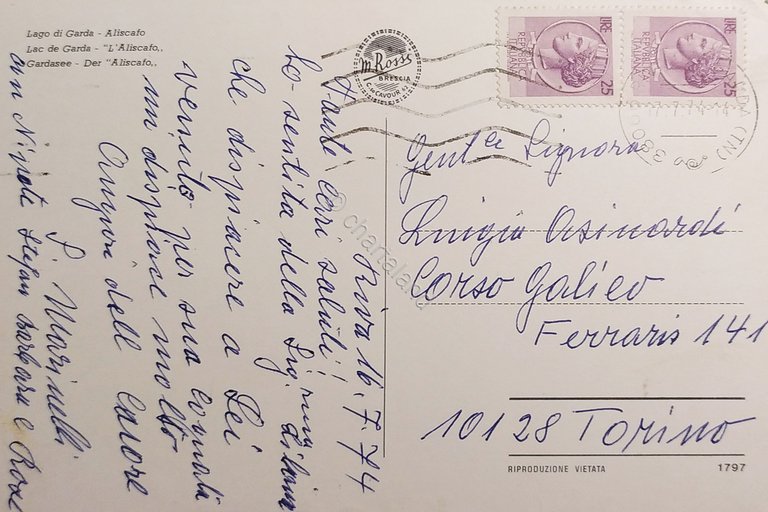 Lago di Garda - Aliscafo
Lac de Garda - "L'Aliscafo,,
Gardasee - Der "Aliscafo,,
m. Rossi
BRESCIA
C. M. CAVOUR 62
LIRE 25
REPUBBLICA ITALIANA
LIRE 25
REPUBBLICA ITALIANA
(TN)
38
Riva 16.7.74
Tante cari saluti!
Ho sentito della Sig.rina
che dispiacere a Lei
venuto per sua cognata
mi dispiace molto
Auguri dell cuore
S. Marinelli
Nipoti Stefan Barbara e
Gent.le Signora
Luigia Asinardi
Corso Galieo
Ferraris 141
10128 Torino
RIPRODUZIONE VIETATA
1797
© chartaland